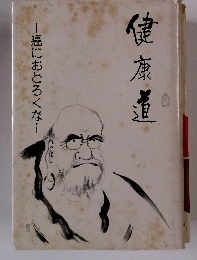 健康道
―癌におどろくな―